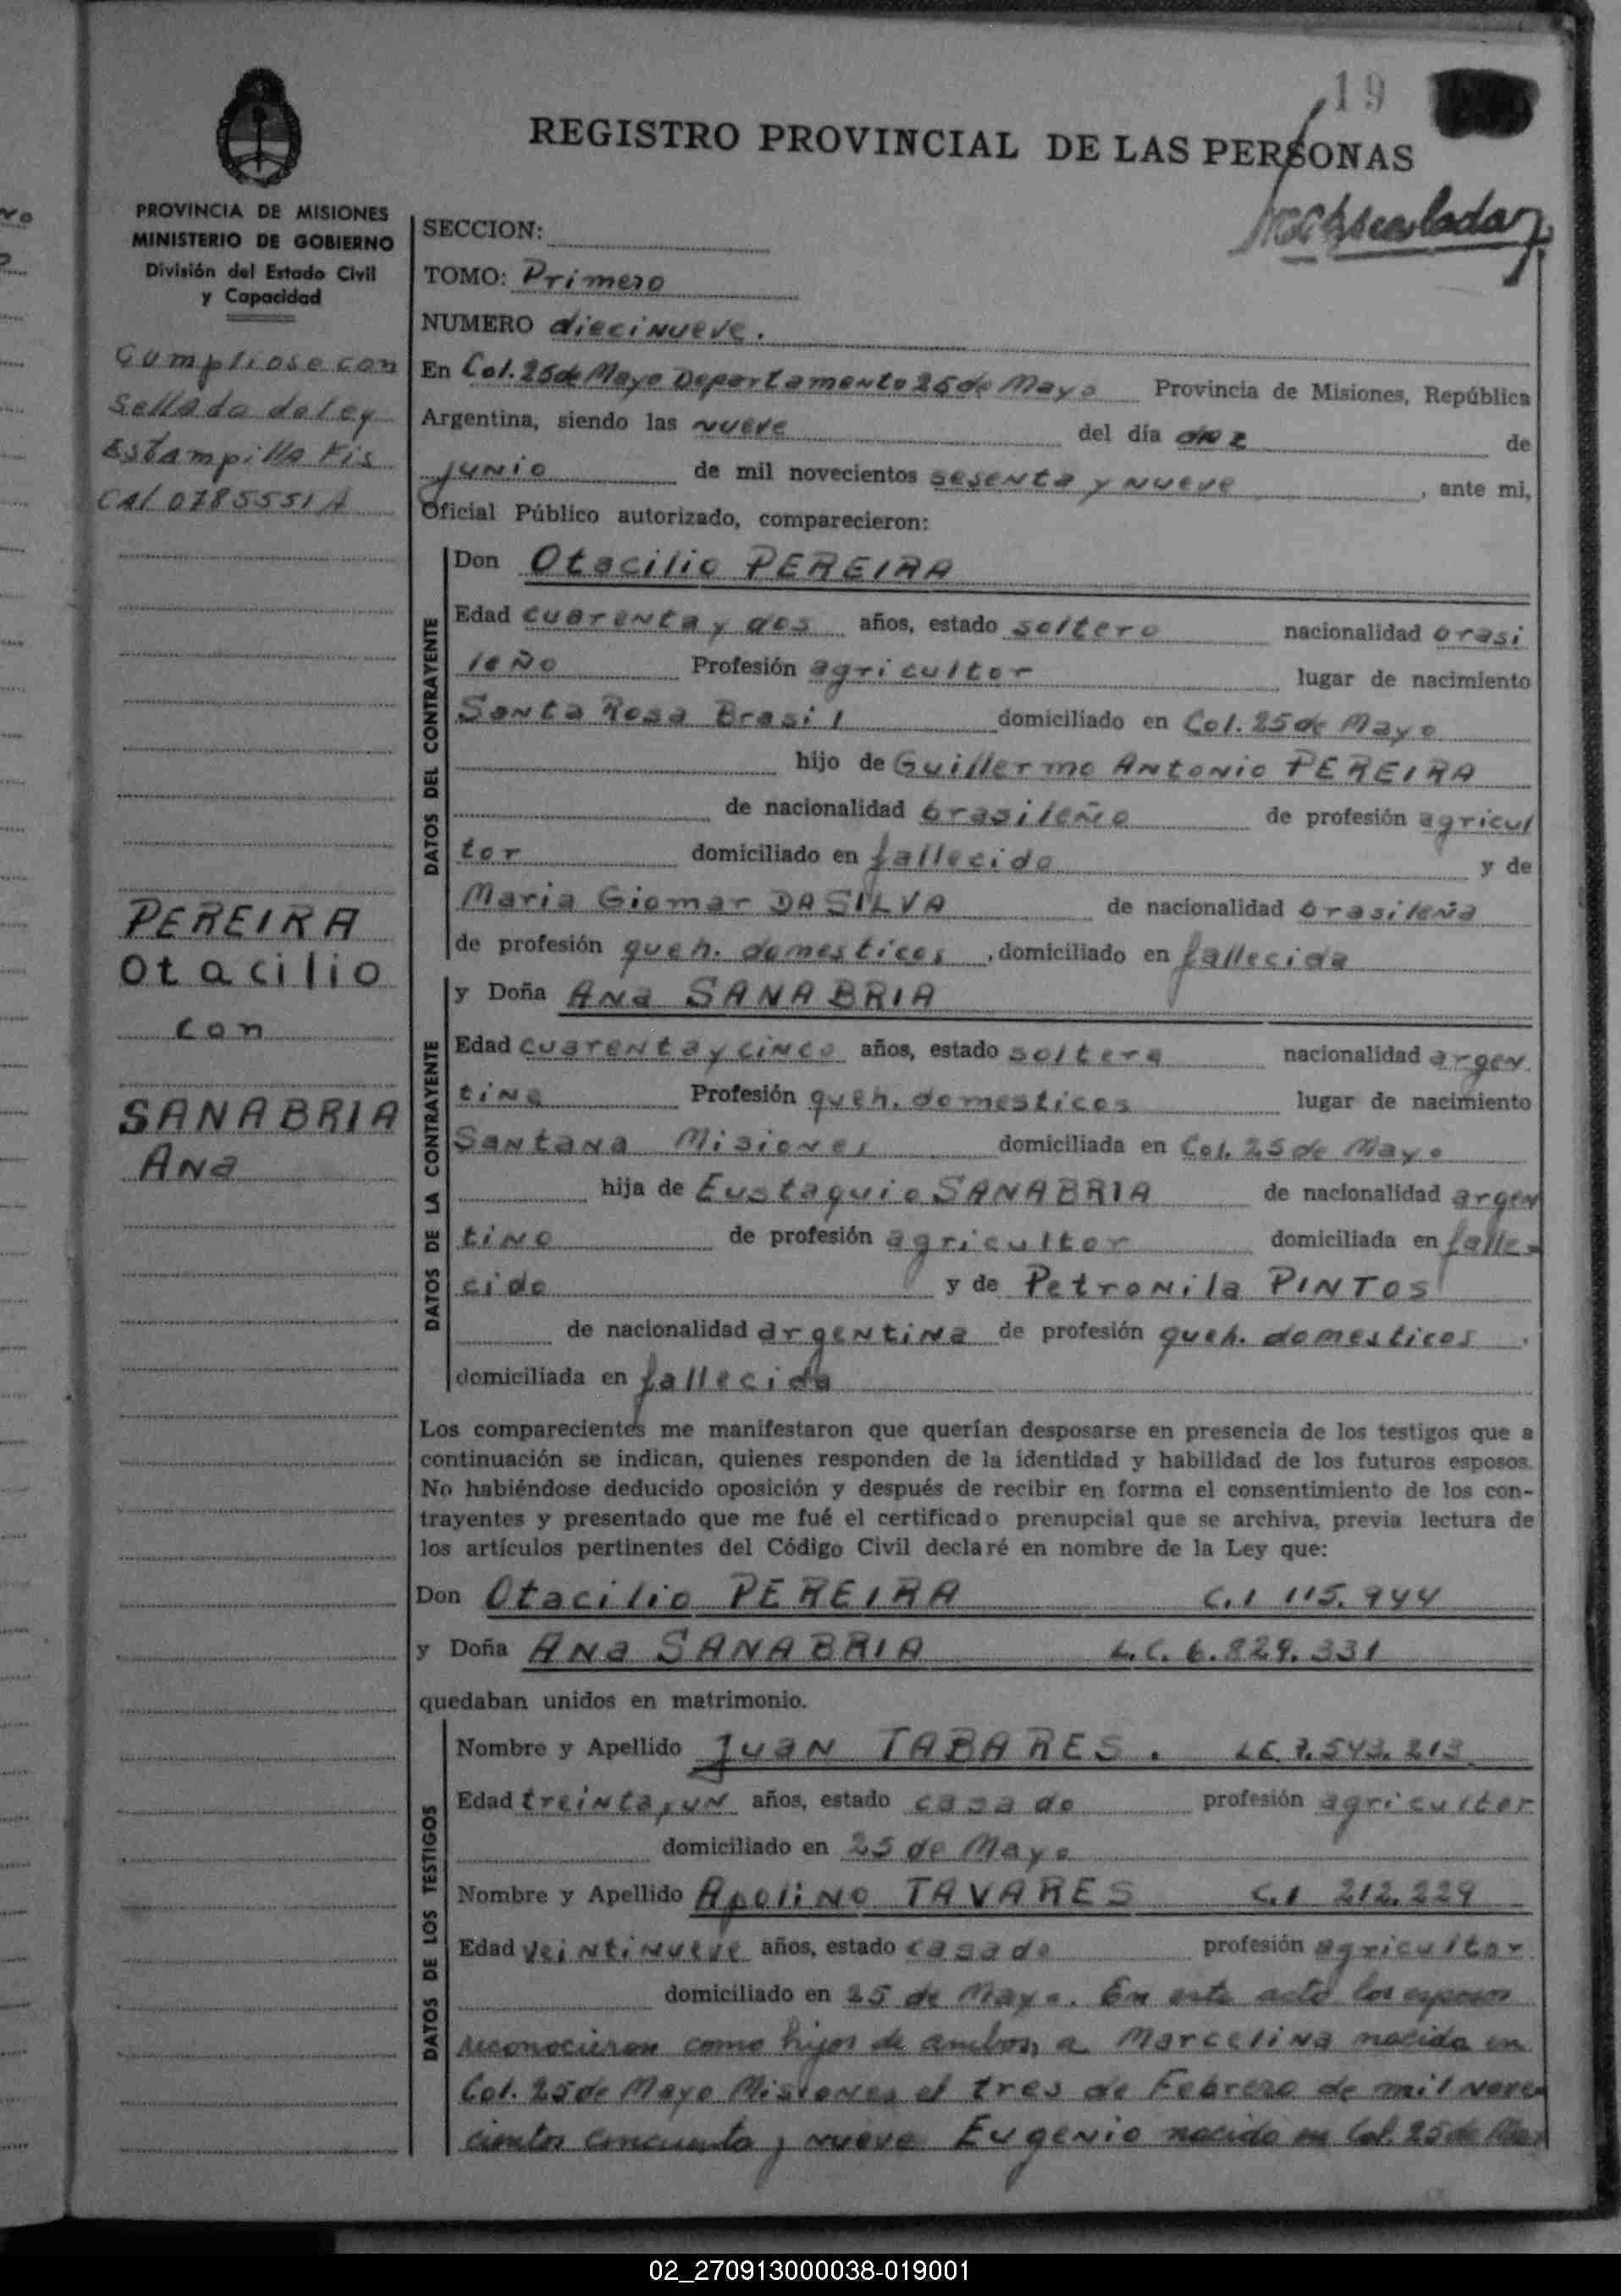 19
REGISTRO PROVINCIAL DE LAS PERSONAS
PROVINCIA DE MISIONES
MINISTERIO DE GOBIERNO
División del Estado Civil
y Capacidad
Cumpliose con
Sellado de ley
Estampilla Fis
cal 0785551 A
PEREIRA
Otacilio
con
SANABRIA
Ana
SECCION:
TOMO: Primero
NUMERO diecinueve.
En Col. 25 de Mayo Departamento 25 de Mayo Provincia de Misiones, República
Argentina, siendo las nueve del día diez de
junio de mil novecientos sesenta y nueve, ante mi,
Oficial Público autorizado, comparecieron:
DATOS DEL CONTRAYENTE
Don Otacilio PEREIRA
Edad cuarenta y dos años, estado soltero nacionalidad brasi
leño Profesión agricultor lugar de nacimiento
Santa Rosa Brasil domiciliado en Col. 25 de Mayo
hijo de Guillermo Antonio PEREIRA
de nacionalidad brasileño de profesión agricul
tor domiciliado en fallecido y de
Maria Giomar DA SILVA de nacionalidad brasileña
de profesión queh. domesticos, domiciliado en fallecida
DATOS DE LA CONTRAYENTE
y Doña Ana SANABRIA
Edad cuarenta y cinco años, estado soltera nacionalidad argen
tina Profesión queh. domesticos lugar de nacimiento
Santana Misiones domiciliada en Col. 25 de Mayo
hija de Eustaquio SANABRIA de nacionalidad argen
tino de profesión agricultor domiciliada en falle-
cido y de Petronila PINTOS
de nacionalidad argentina de profesión queh. domesticos.
domiciliada en fallecida
Los comparecientes me manifestaron que querían desposarse en presencia de los testigos que a
continuación se indican, quienes responden de la identidad y habilidad de los futuros esposos.
No habiéndose deducido oposición y después de recibir en forma el consentimiento de los con-
trayentes y presentado que me fué el certificado prenupcial que se archiva, previa lectura de
los artículos pertinentes del Código Civil declaré en nombre de la Ley que:
Don Otacilio PEREIRA C.I 115.944
y Doña Ana SANABRIA L.C. 6.829.331
quedaban unidos en matrimonio.
DATOS DE LOS TESTIGOS
Nombre y Apellido Juan TABARES. LE 7.543.213
Edad treinta y un años, estado casado profesión agricultor
domiciliado en 25 de Mayo
Nombre y Apellido Apolino TAVARES C.I 212.229
Edad veintinueve años, estado casado profesión agricultor
domiciliado en 25 de Mayo. En este acto los esposos
reconocieron como hijos de ambos, a Marcelina nacida en
Col. 25 de Mayo Misiones el tres de Febrero de mil nove-
cientos cincuenta y nueve Eugenio nacido en Col. 25 de May
02_270913000038-019001